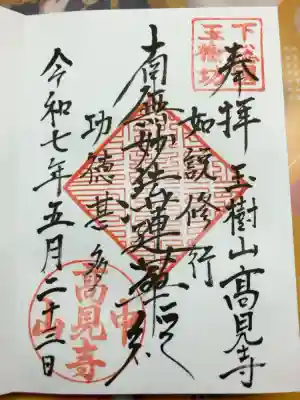 奉拝
玉樹山高見寺
如説修行
南無妙法蓮華経
功徳甚多
令和七年五月二十三日
高見寺